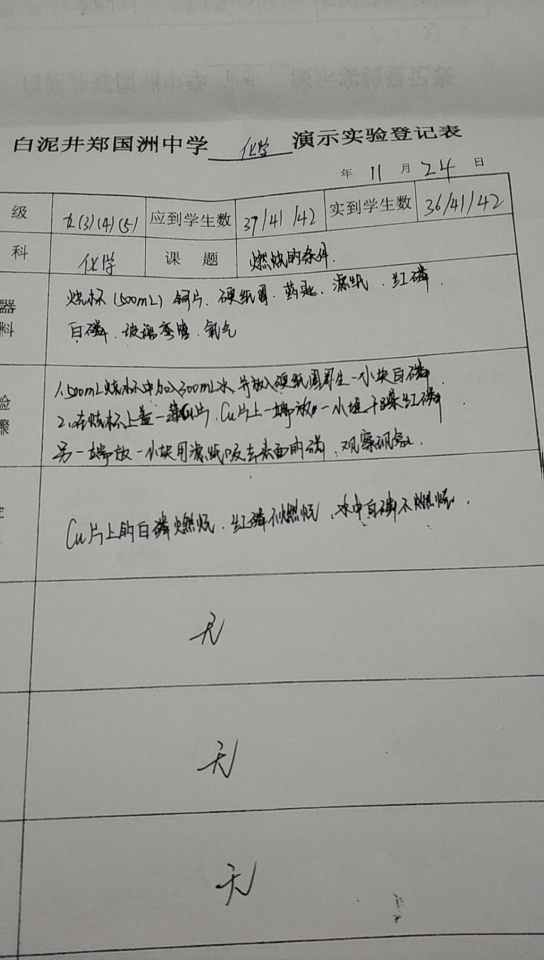 白泥井郑国洲中学 化学 演示实验登记表
年 11 月 24 日
级 九(3)(4)(5) 应到学生数 37/41/42 实到学生数 36/41/42
科 化学 课题 燃烧的条件.
器 烧杯(500mL) 铜片. 硬纸圈. 药匙. 滤纸. 红磷.
料 白磷. 玻璃弯管. 氧气
验 1.500mL烧杯中加入300mL水, 并放入硬纸圈 一小块白磷.
骤 2.在烧杯上盖一 片. Cu片上一端放 一小堆干燥红磷
另一端放一小块用滤纸吸去表面的 , 观察现象.
Cu片上的白磷燃烧. 红磷不燃烧, 水中白磷不燃烧.
无
无
无